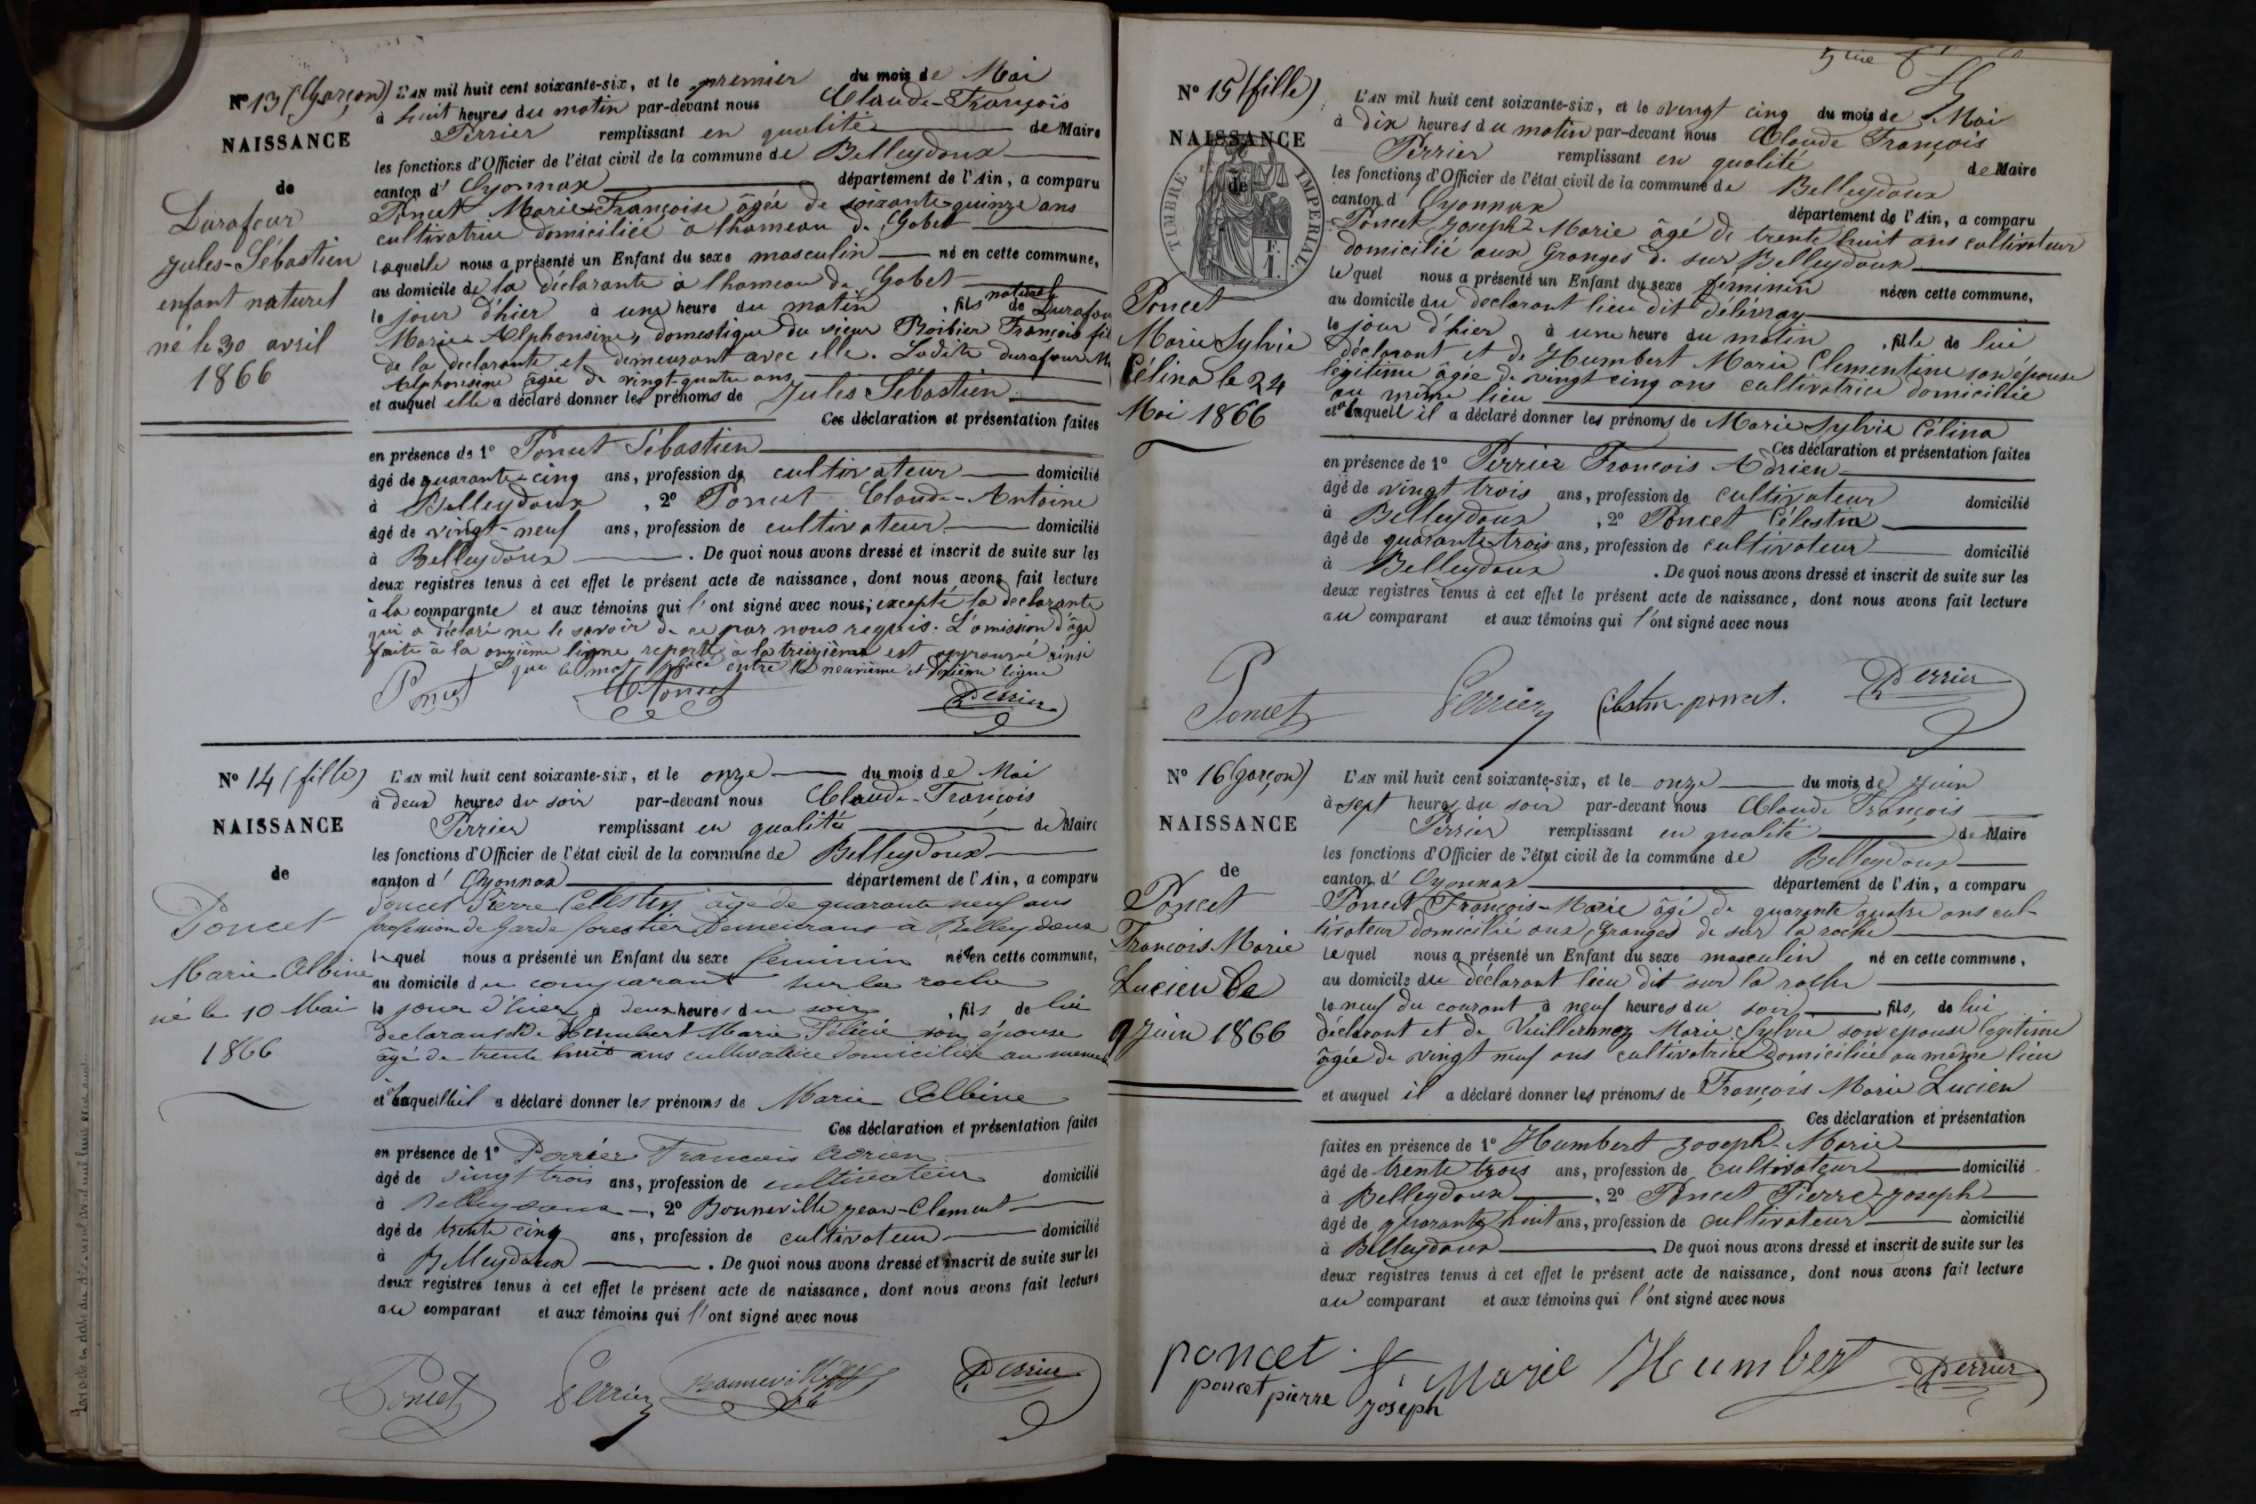 N° 13 (Garçon)
NAISSANCE
de
Durafour
Jules-Sébastien
enfant naturel
né le 30 avril
1866
L'AN mil huit cent soixante-six, et le premier du mois de Mai
à huit heures du matin par-devant nous Claude-François
Perrier remplissant en qualité de Maire
les fonctions d'Officier de l'état civil de la commune de Belleydoux
canton d' Oyonnax département de l'Ain, a comparu
Poncet Marie-Françoise âgée de soixante-quinze ans
cultivatrice domiciliée à l'hameau de Gobet
laquelle nous a présenté un Enfant du sexe masculin né en cette commune,
au domicile de la déclarante à l'hameau de Gobet
le jour d'hier à une heure du matin , fils naturel de Durafour
Marie Alphonsine, domestique du sieur Boibier François fils
de la declarante et demeurant avec elle. Ladite durafour
Alphonsine âgée de vingt-quatre ans
et auquel elle a déclaré donner les prénoms de Jules Sébastien
Ces déclaration et présentation faites
en présence de 1° Poncet Sébastien
âgé de quarante-cinq ans, profession de cultivateur domicilié
à Belleydoux , 2° Poncet Claude-Antoine
âgé de vingt-neuf ans, profession de cultivateur domicilié
à Belleydoux . De quoi nous avons dressé et inscrit de suite sur les
deux registres tenus à cet effet le présent acte de naissance, dont nous avons fait lecture
à la comparante et aux témoins qui l'ont signé avec nous; excepté la declarante
qui a déclaré ne le savoir de ce par nous requis. L'omission d'âge
faite à la onzième ligne reporté à la treizième est approuvé ainsi
que le mot placé entre la neuvième et dixième ligne
Poncet Poncet Perrier
N° 14 (fille)
NAISSANCE
de
Poncet
Marie Albine
né le 10 Mai
1866
L'AN mil huit cent soixante-six, et le onze du mois de Mai
à deux heures du soir par-devant nous Claude-François
Perrier remplissant en qualité de Maire
les fonctions d'Officier de l'état civil de la commune de Belleydoux
canton d' Oyonnax département de l'Ain, a comparu
Poncet Pierre Célestin âge de quarante neuf ans
profession de Garde forestier Demeurant à Belleydoux
lequel nous a présenté un Enfant du sexe feminin née en cette commune,
au domicile du comparant sur la roche
le jour d'hier à deux heures du soir , fils de lui
declarant et de Humbert Marie Félicie son épouse
âgé de trente huit ans cultivatrice domiciliée au même
et à laquelle il a déclaré donner les prénoms de Marie Albine
Ces déclaration et présentation faites
en présence de 1° Perrier Francois Adrien
âgé de vingt trois ans, profession de cultivateur domicilié
à Belleydoux , 2° Bonneville Jean-Clement
âgé de trente cinq ans, profession de cultivateur domicilié
à Belleydoux . De quoi nous avons dressé et inscrit de suite sur les
deux registres tenus à cet effet le présent acte de naissance, dont nous avons fait lecture
au comparant et aux témoins qui l'ont signé avec nous
Poncet Perrier Bonneville Perrier
N° 15 (fille)
NAISSANCE
de
TIMBRE IMPÉRIAL
1 F.
Poncet
Marie Sylvie
Célina le 24
Mai 1866
L'AN mil huit cent soixante-six, et le vingt cinq du mois de Mai
à dix heures du matin par-devant nous Claude François
Perrier remplissant en qualité de Maire
les fonctions d'Officier de l'état civil de la commune de Belleydoux
canton d Oyonnax département de l'Ain, a comparu
Poncet Joseph Marie âgé de trente huit ans cultivateur
domicilié aux Granges de sur Belleydoux
lequel nous a présenté un Enfant du sexe féminin née en cette commune,
au domicile du declarant lieu dit
le jour d'hier à une heure du matin , fille de lui
déclarant et de Humbert Marie Clementine son épouse
légitime âgée de vingt cinq ans cultivatrice domiciliée
au même lieu
et à laquelle il a déclaré donner les prénoms de Marie Sylvie Célina
Ces déclaration et présentation faites
en présence de 1° Perrier François Adrien
âgé de vingt trois ans, profession de cultivateur domicilié
à Belleydoux , 2° Poncet Célestin
âgé de quarante-trois ans, profession de cultivateur domicilié
à Belleydoux . De quoi nous avons dressé et inscrit de suite sur les
deux registres tenus à cet effet le présent acte de naissance, dont nous avons fait lecture
au comparant et aux témoins qui l'ont signé avec nous
Poncet Perrier Célestin poncet. Perrier
N° 16 (garçon)
NAISSANCE
de
Poncet
François Marie
Lucien Le
9 Juin 1866
L'AN mil huit cent soixante-six, et le onze du mois de Juin
à sept heures du soir par-devant nous Claude François
Perrier remplissant en qualité de Maire
les fonctions d'Officier de l'état civil de la commune de Belleydoux
canton d' Oyonnax département de l'Ain, a comparu
Poncet François-Marie âgé de quarante quatre ans cul-
tivateur domicilié aux Granges de sur la roche
lequel nous a présenté un Enfant du sexe masculin né en cette commune,
au domicile du déclarant lieu dit sur la roche
le neuf du courant à neuf heures du soir , fils, de lui
déclarant et de Vuillermoz Marie Sylvie son epouse légitime
âgée de vingt neuf ans cultivatrice domiciliée au même lieu
et auquel il a déclaré donner les prénoms de François Marie Lucien
Ces déclaration et présentation
faites en présence de 1° Humbert Joseph-Marie
âgé de trente trois ans, profession de cultivateur domicilié
à Belleydoux , 2° Poncet Pierre-Joseph
âgé de quarante huit ans, profession de cultivateur domicilié
à Belleydoux De quoi nous avons dressé et inscrit de suite sur les
deux registres tenus à cet effet le présent acte de naissance, dont nous avons fait lecture
au comparant et aux témoins qui l'ont signé avec nous
poncet Marie Humbert Perrier
poncet pierre joseph